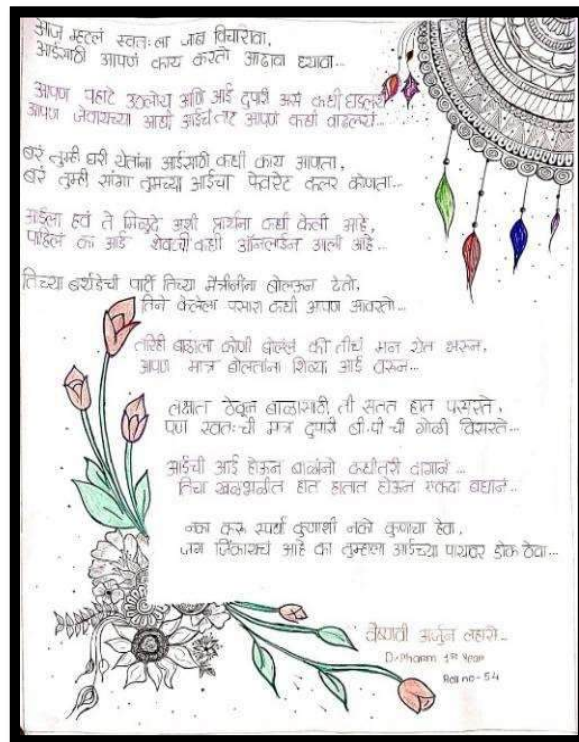 आज म्हटलं स्वतः ला जाब विचारावा,
आईसाठी आपणं काय करतो आढावा घ्यावा...
आपण पहाटे उठलोय आणि आई दुपारी असं कधी घडलयं
आपण जेवायच्या आधी आईचं ताट आपणं कधी वाढलयं...
बरं तुम्ही घरी येतांना आईसाठी कधी काय आणता,
बरं तुम्ही सांगा तुमच्या आईचा फेवरेट कलर कोणता...
आईला हवं ते मिळूदे अशी प्रार्थना कधी केली आहे,
पाहिलं का आई शेवटी कधी ऑनलाईन आली आहे...
तिच्या बर्थडेची पार्टी तिच्या मैत्रीनींना बोलऊन देतो,
तिने केलेला पसारा कधी आपण आवरतो...
तरिही बाळाला कोणी बोल्लं की तीचं मन येत भरून,
आपण मात्र बोलतांना शिव्या आई वरून...
लक्षात ठेवून बाळासाठी ती सतत हात पसरते,
पण स्वतः ची मात्र दुपारी बी.पी ची गोळी विसरते...
आईची आई होऊन बाळांनो कधीतरी वागानं...
तिचा खळभळीत हात हातात होऊन एकदा बघानं..
नका करू स्पर्धा कुणाशी नको कुणाचा हेवा,
जग जिंकायचं आहे का तुम्हाला आईच्या पायवर डोक ठेवा...
वैष्णवी अर्जुन लहासे...
D.Pharm 1st Year
Roll no - 54